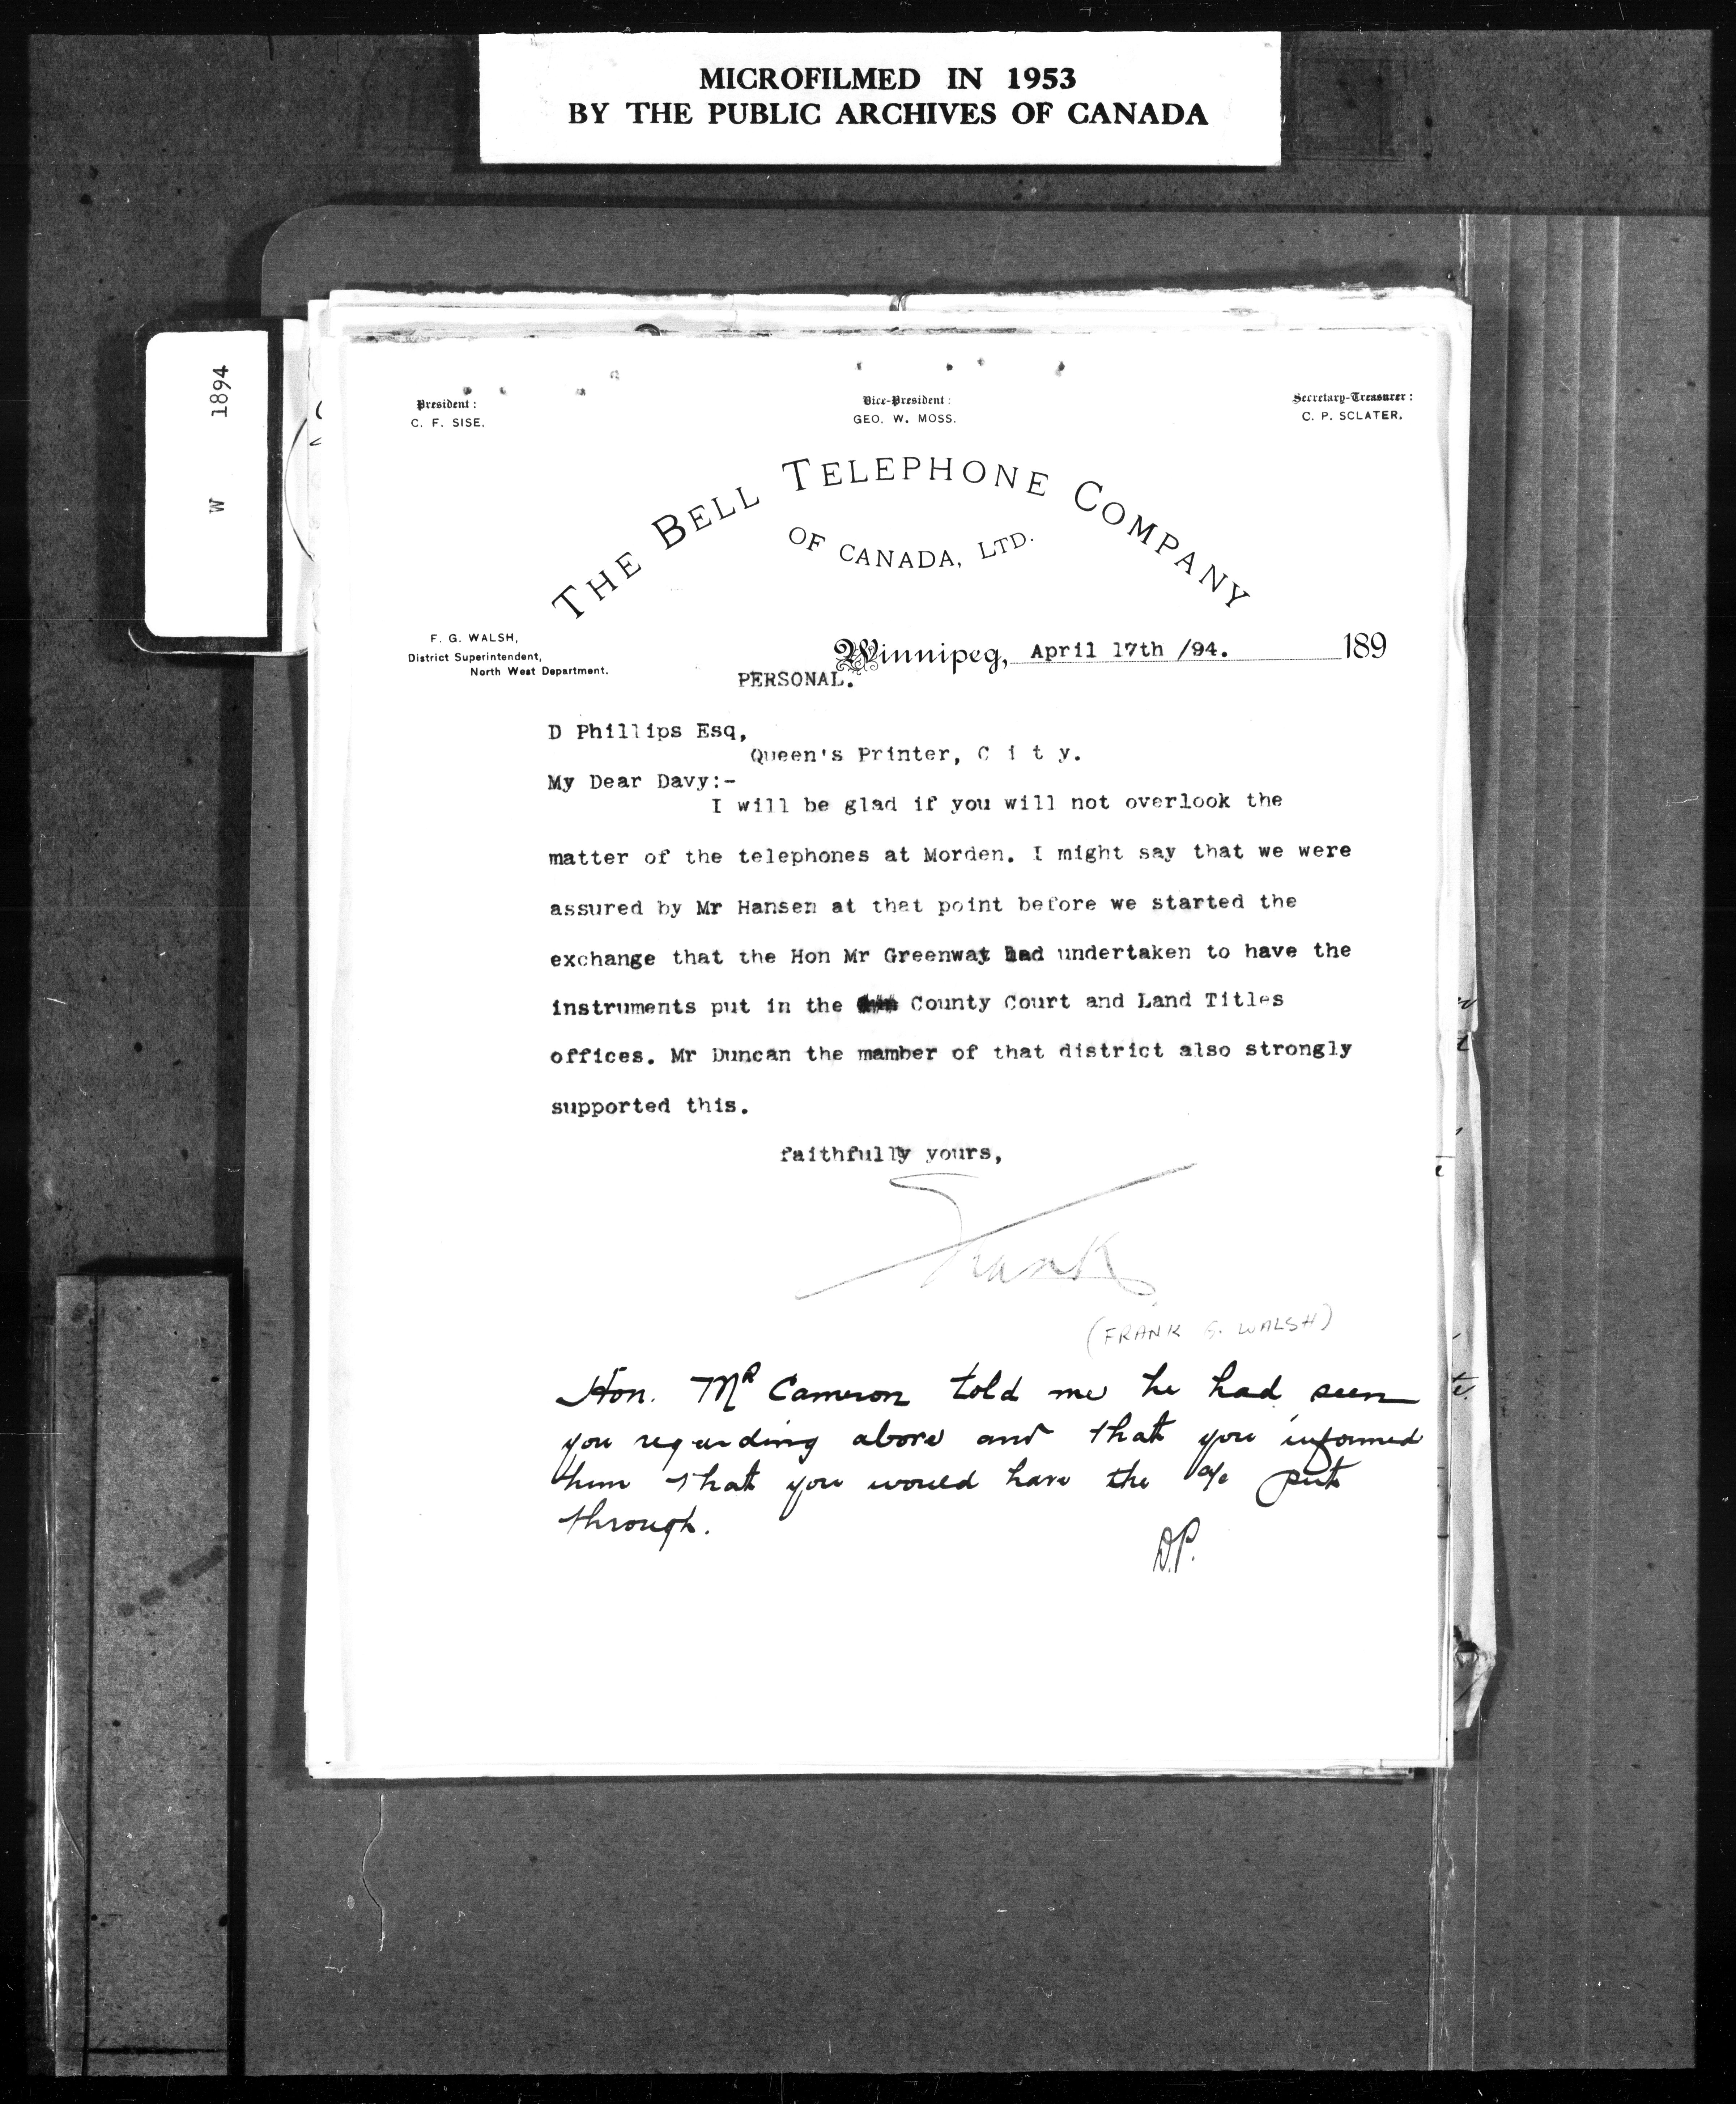 MICROFILMED IN 1953
BY THE PUBLIC ARCHIVES OF CANADA
W 1894
President:
C. F. SISE.
Vice-President:
GEO. W. MOSS.
Secretary-Treasurer:
C. P. SCLATER.
THE BELL TELEPHONE COMPANY
OF CANADA, LTD.
F. G. WALSH,
District Superintendent,
North West Department.
Winnipeg, April 17th /94. 189
PERSONAL.
D Phillips Esq,
Queen's Printer, C i t y.
My Dear Davy:-
I will be glad if you will not overlook the
matter of the telephones at Morden. I might say that we were
assured by Mr Hansen at that point before we started the
exchange that the Hon Mr Greenway had undertaken to have the
instruments put in the County Court and Land Titles
offices. Mr Duncan the mamber of that district also strongly
supported this.
faithfully yours,
Frank
(FRANK G. WALSH)
Hon. Mr Cameron told me he had seen
you regarding above and that you informed
him that you would have the a/c put
through.
D.P.